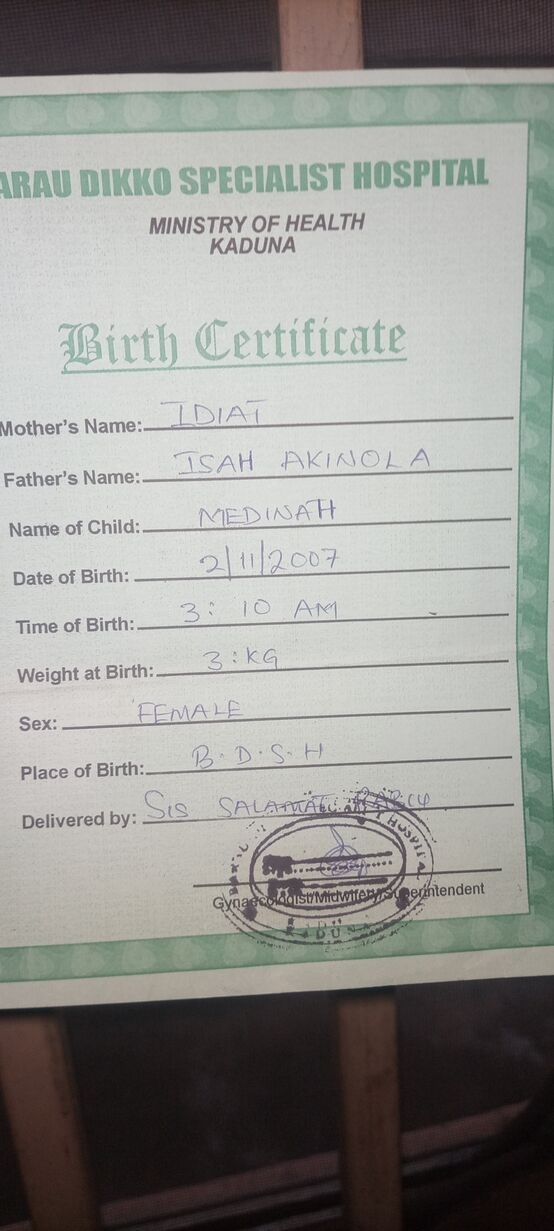 ARAU DIKKO SPECIALIST HOSPITAL
MINISTRY OF HEALTH
KADUNA
Birth Certificate
Mother's Name: IDIAT
Father's Name: ISAH AKINOLA
Name of Child: MEDINAH
Date of Birth: 2/11/2007
Time of Birth: 3: 10 AM
Weight at Birth: 3:KG
Sex: FEMALE
Place of Birth: B.D.S.H
Delivered by: SIS SALAMATU
HOSPITAL
Gynaecologist/Midwifery/Superintendent